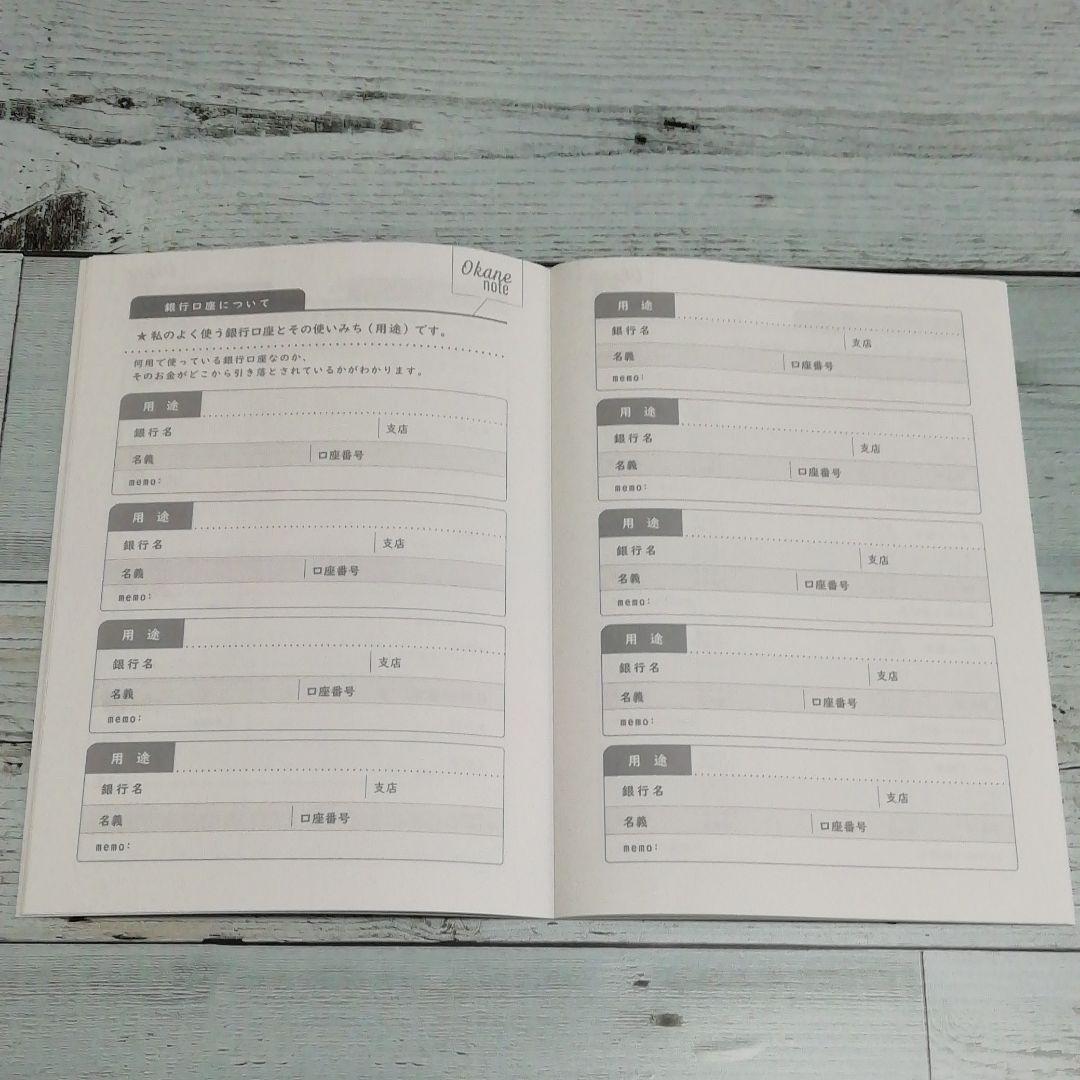 Okane
note
銀行口座について
★私のよく使う銀行口座とその使いみち（用途）です。
何用で使っている銀行口座なのか、
そのお金がどこから引き落とされているかがわかります。
用途
銀行名 支店
名義 口座番号
memo:
用途
銀行名 支店
名義 口座番号
memo:
用途
銀行名 支店
名義 口座番号
memo:
用途
銀行名 支店
名義 口座番号
memo:
用途
銀行名 支店
名義 口座番号
memo:
用途
銀行名 支店
名義 口座番号
memo:
用途
銀行名 支店
名義 口座番号
memo:
用途
銀行名 支店
名義 口座番号
memo:
用途
銀行名 支店
名義 口座番号
memo: